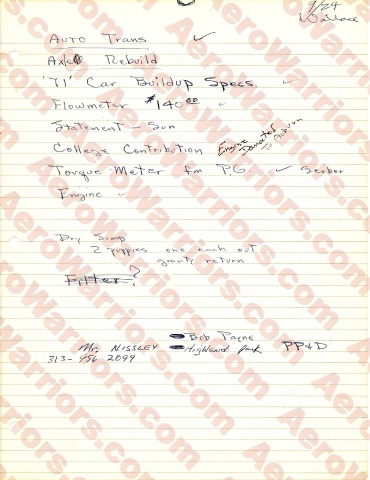 9/24
Wallace
Auto Trans ✓
Axle Rebuild
'71' Car Buildup Specs ✓
Flowmeter $140.00 ✓
Statement - Sun
College Contribution Engine Donated To Auburn
Torque Meter fm P.G. ✓ Gerber
Engine ✓
Dry Sump
2 puppies one each out
gravity return
Filter?
Bob Payne
Mr. NISSLEY Highland Park PP&D
313-956 2099
AeroWarriors.com